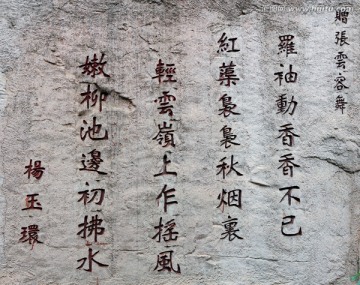 贈張雲容舞
羅袖動香香不已
紅蕖裊裊秋烟裏
輕雲嶺上乍搖風
嫩柳池邊初拂水
楊玉環